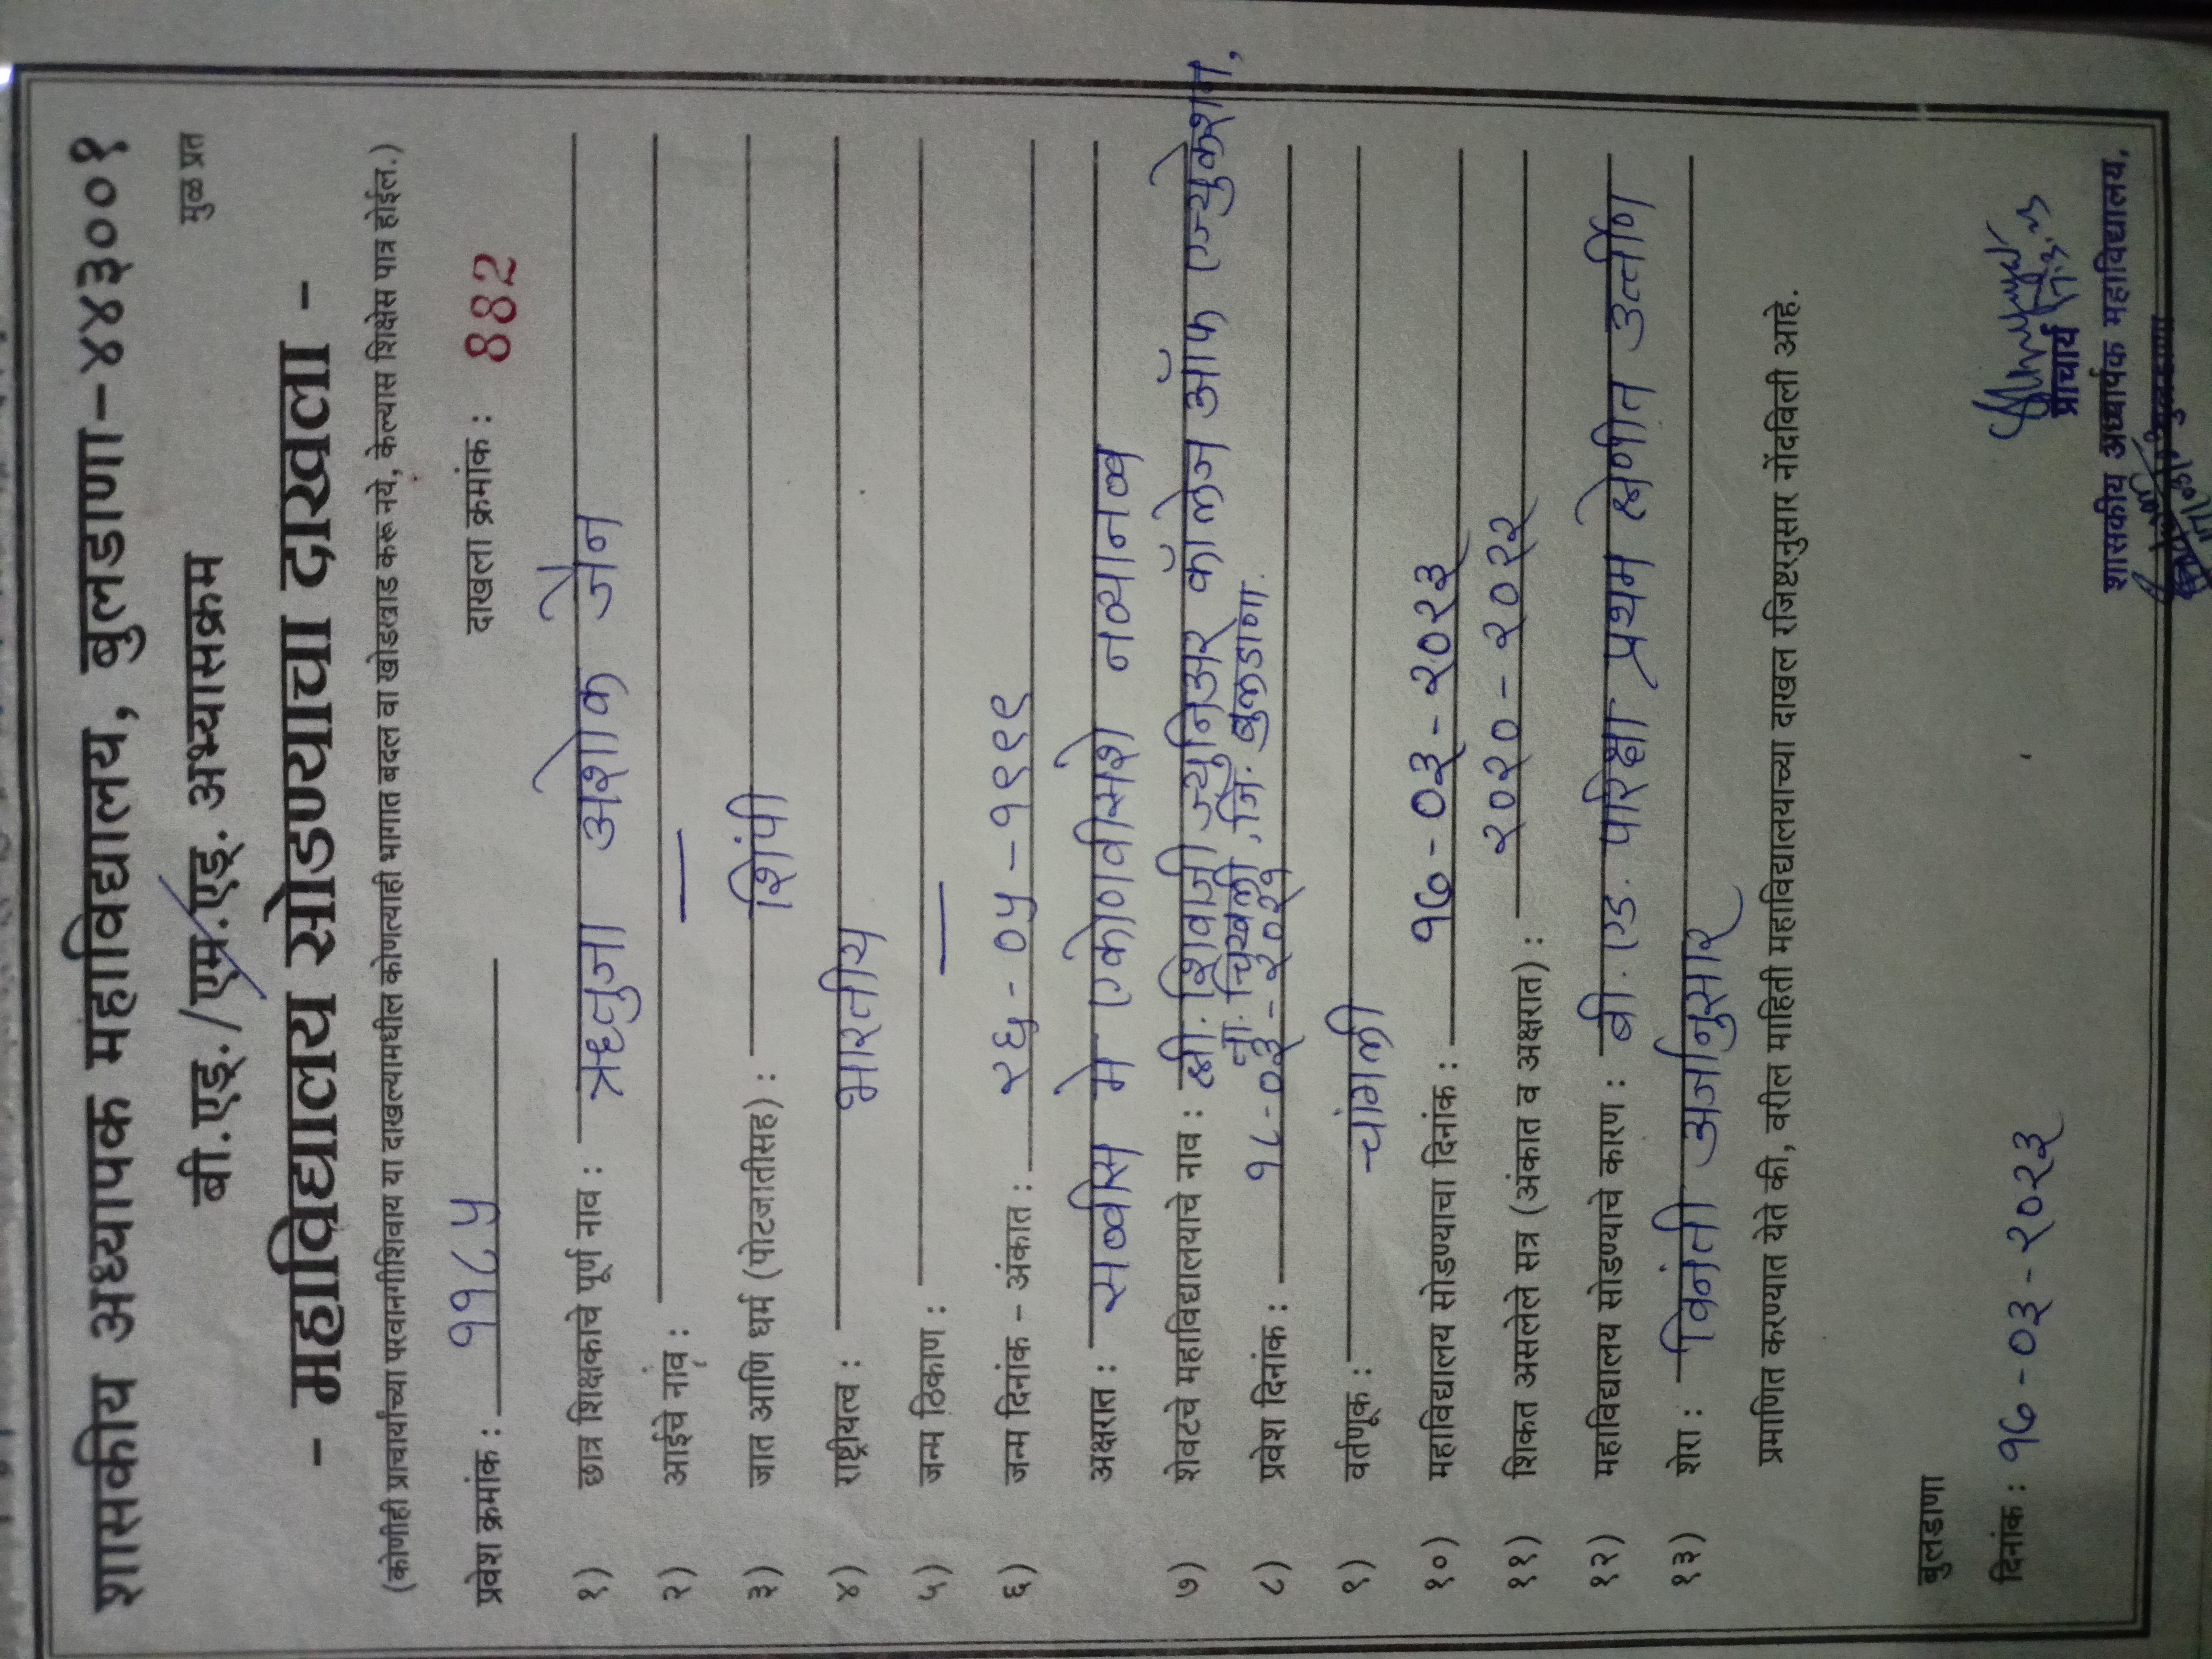 शासकीय अध्यापक महाविद्यालय, बुलडाणा-४४३००१
बी.एड्./एम.एड्. अभ्यासक्रम
मुळ प्रत
- महाविद्यालय सोडण्याचा दाखला -
(कोणीही प्राचार्यांच्या परवानगीशिवाय या दाखल्यामधील कोणत्याही भागात बदल वा खोडखाड करू नये, केल्यास शिक्षेस पात्र होईल.)
प्रवेश क्रमांक : ११८५ दाखला क्रमांक : 882
१) छात्र शिक्षकाचे पूर्ण नाव : ऋतुजा अशोक जैन
२) आईचे नांव : —
३) जात आणि धर्म (पोटजातीसह) : शिंपी
४) राष्ट्रीयत्व : भारतीय
५) जन्म ठिकाण : —
६) जन्म दिनांक - अंकात : २६-०५-१९९९
अक्षरात : सव्वीस मे एकोणवीसशे नव्यानव
७) शेवटचे महाविद्यालयाचे नाव : श्री. शिवाजी ज्युनिअर कॉलेज ऑफ एज्युकेशन,
ता. चिखली, जि. बुलडाणा.
८) प्रवेश दिनांक : १८-०३-२०२१
९) वर्तणूक : चांगली
१०) महाविद्यालय सोडण्याचा दिनांक : १७-०३-२०२३
११) शिकत असलेले सत्र (अंकात व अक्षरात) : २०२०-२०२२
१२) महाविद्यालय सोडण्याचे कारण : बी.एड. परिक्षा प्रथम श्रेणीत उत्तीर्ण
१३) शेरा : विनंती अर्जानुसार
प्रमाणित करण्यात येते की, वरील माहिती महाविद्यालयाच्या दाखल रजिष्टरनुसार नोंदविली आहे.
बुलडाणा
दिनांक : १७-०३-२०२३
प्राचार्य
शासकीय अध्यापक महाविद्यालय,